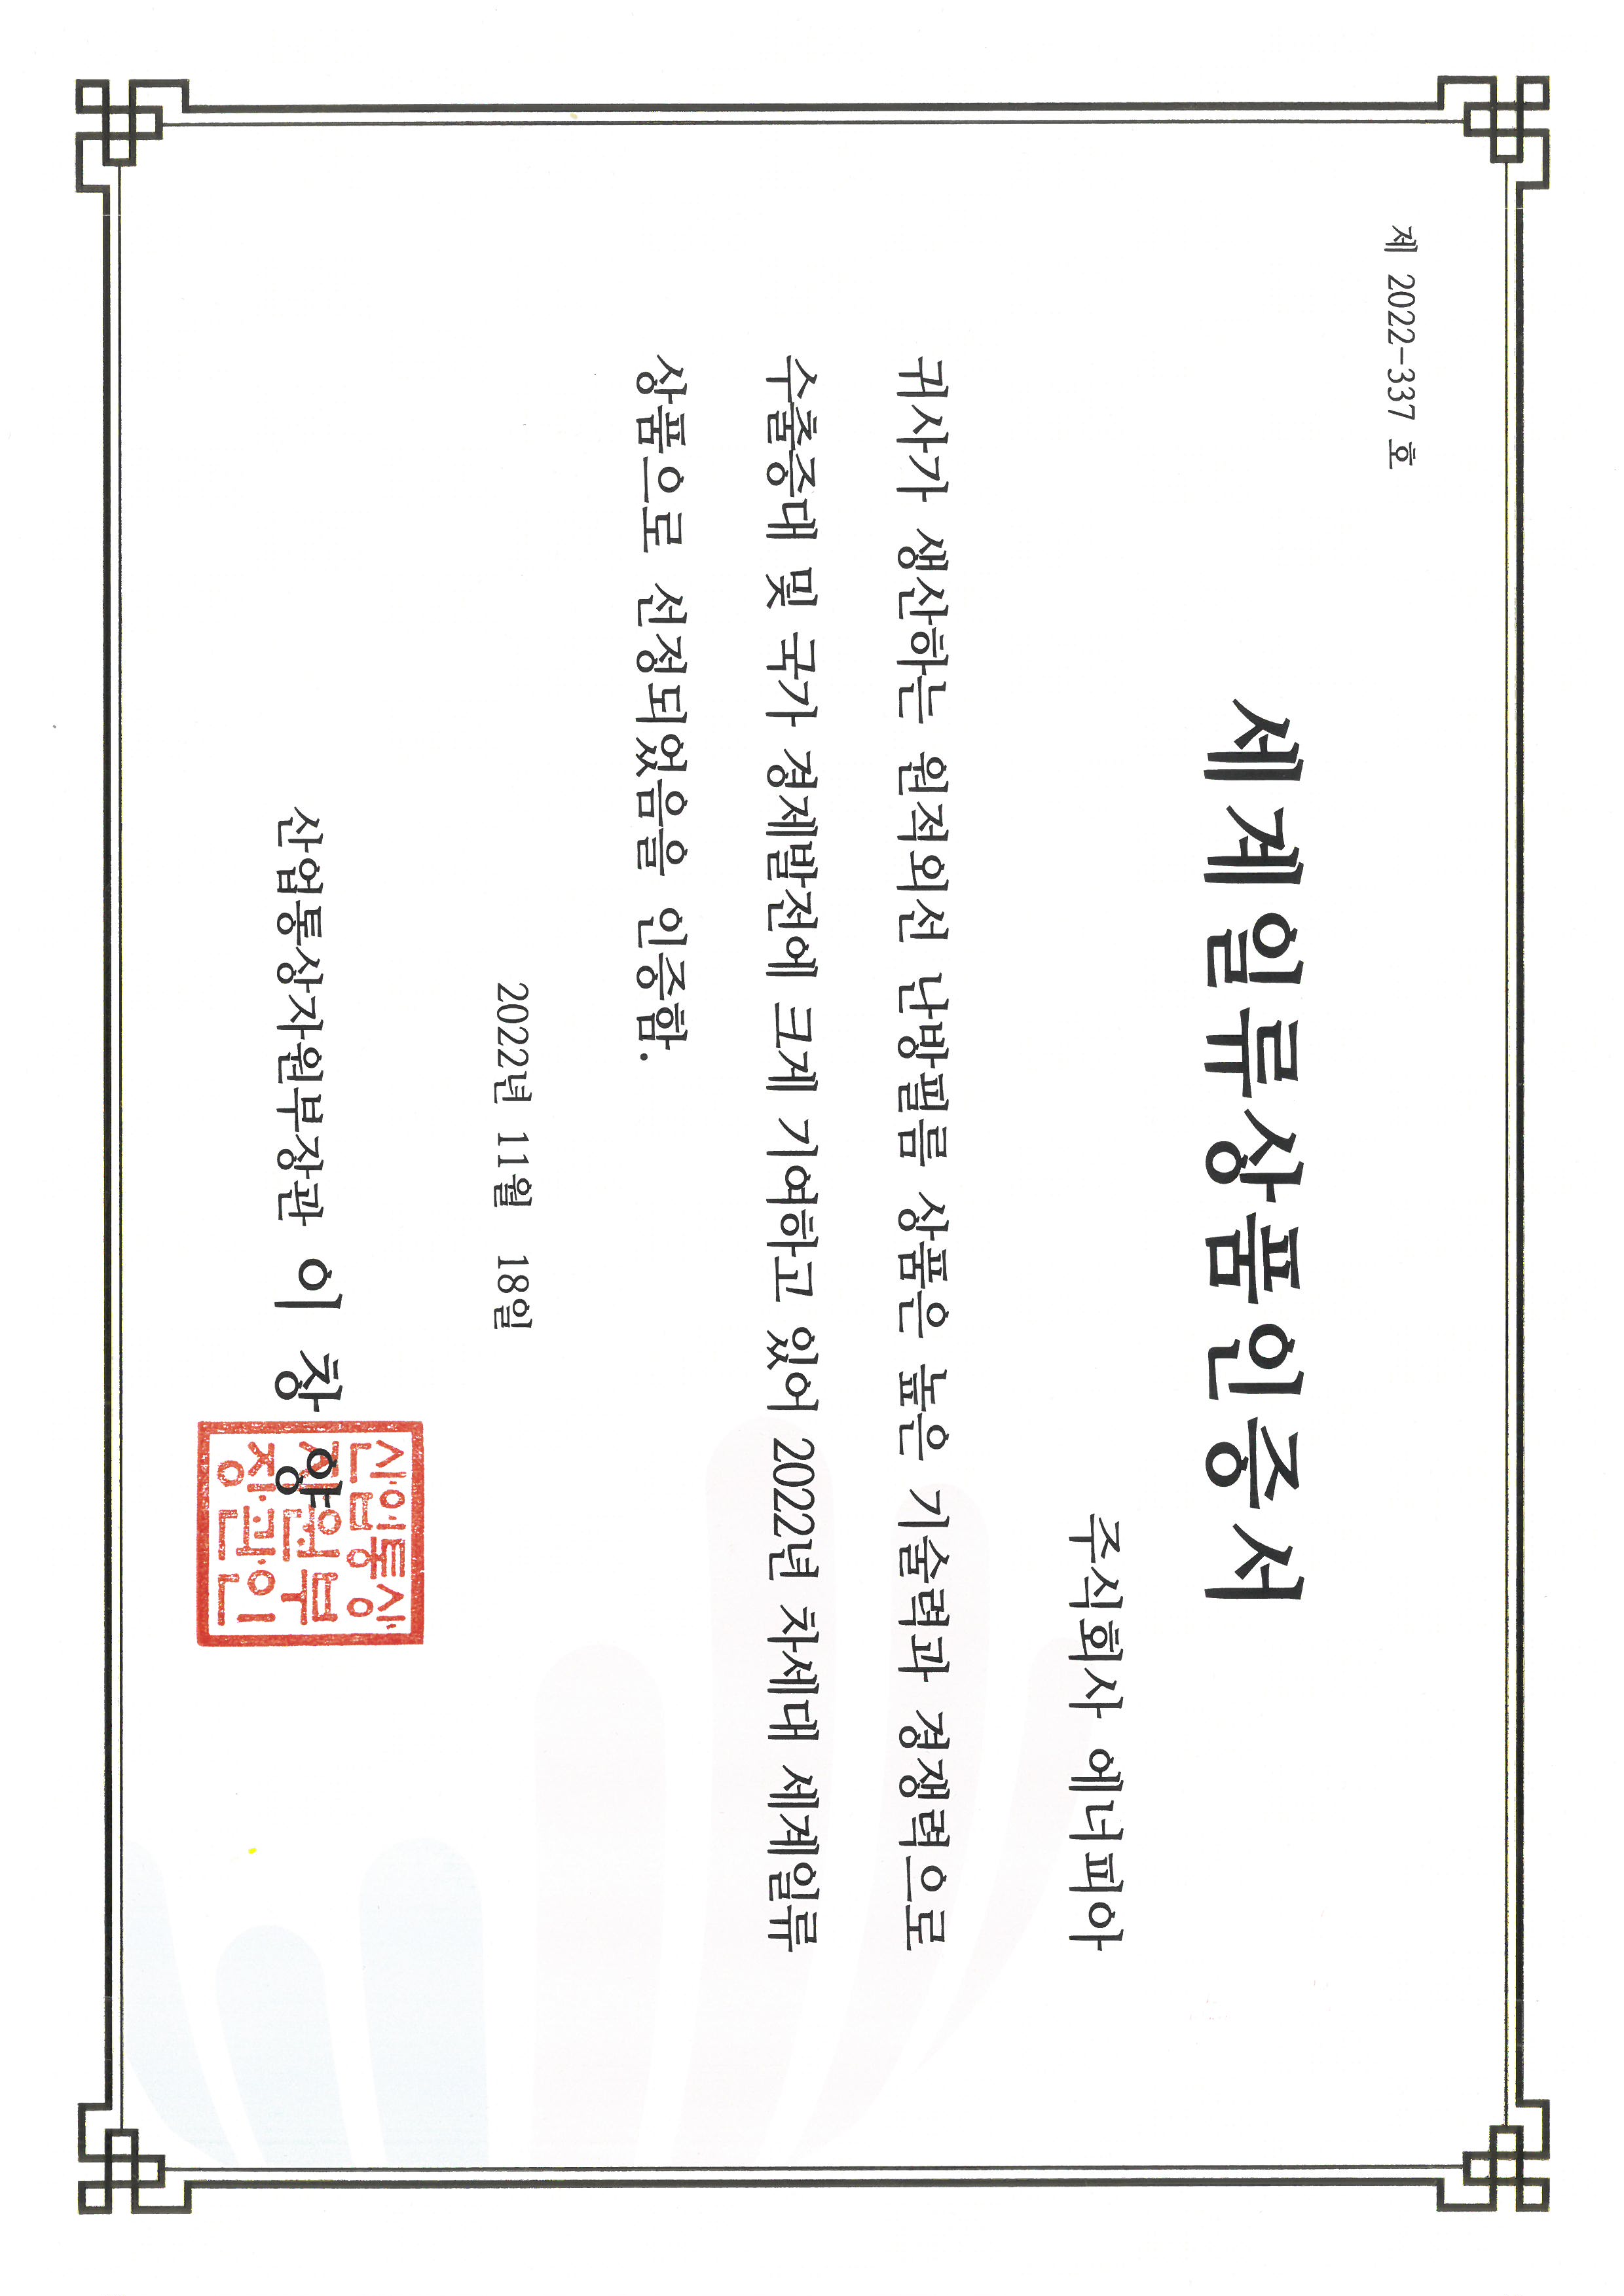 제 2022-337 호
세계일류상품인증서
주식회사 에너피아
귀사가 생산하는 원적외선 난방필름 상품은 높은 기술력과 경쟁력으로
수출증대 및 국가 경제발전에 크게 기여하고 있어 2022년 차세대 세계일류
상품으로 선정되었음을 인증함.
2022년 11월 18일
산업통상자원부장관 이 창 양
산업통상
자원부
장관인